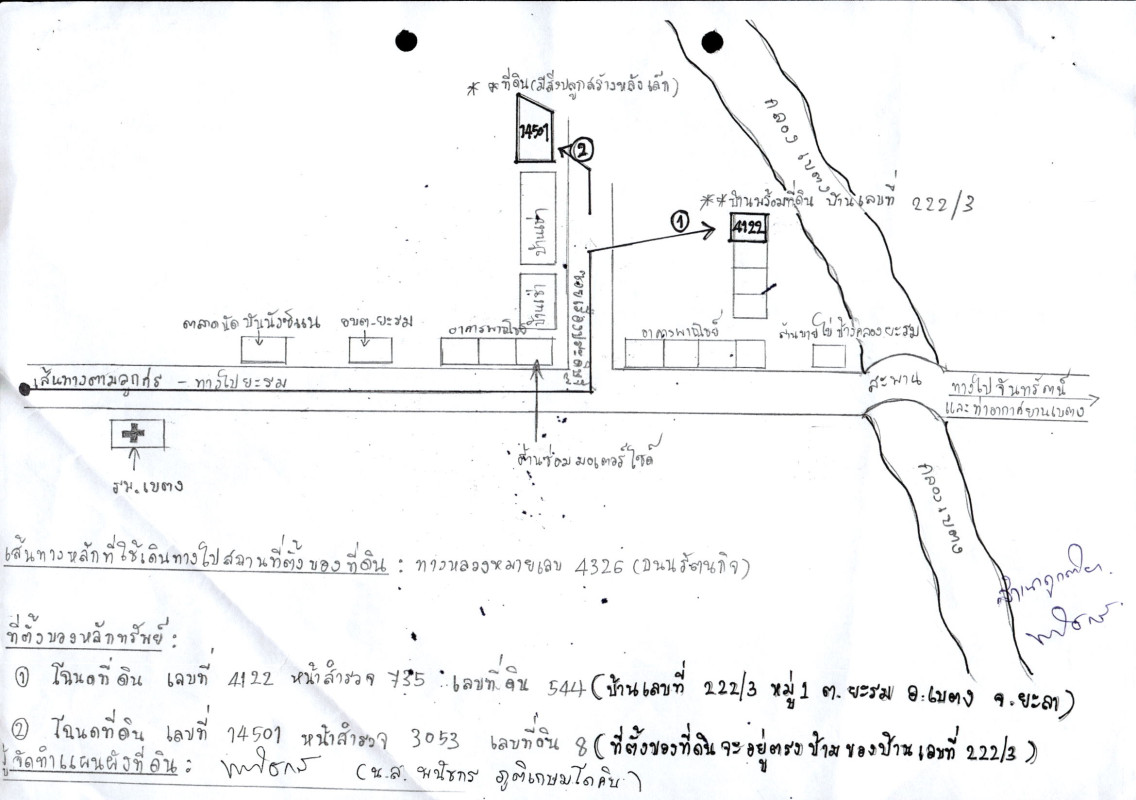 * * ที่ดิน (มีสิ่งปลูกสร้างหลังเล็ก)
14501
②
คลองเบตง
①
**บ้านพร้อมที่ดิน บ้านเลขที่ 222/3
4122
บ้านเช่า
บ้านเช่า
ตลาดนัดบ้าน
อบต.ยะรม
อาคารพาณิชย์
อาคารพาณิชย์
ร้านขายไข่ ข้างคลองยะรม
เส้นทางตามลูกศร - ทางไปยะรม
สะพาน
ทางไปจันทรัตน์
และท่าอากาศยานเบตง
ร้านซ่อมมอเตอร์ไซค์
รพ.เบตง
คลองเบตง
เส้นทางหลักที่ใช้เดินทางไปสถานที่ตั้งของที่ดิน : ทางหลวงหมายเลข 4326 (ถนนรัตนกิจ)
สำเนาถูกต้อง
ที่ตั้งของหลักทรัพย์ :
① โฉนดที่ดิน เลขที่ 4122 หน้าสำรวจ 735 เลขที่ดิน 544 (บ้านเลขที่ 222/3 หมู่ 1 ต.ยะรม อ.เบตง จ.ยะลา)
② โฉนดที่ดิน เลขที่ 14501 หน้าสำรวจ 3053 เลขที่ดิน 8 (ที่ตั้งของที่ดินจะอยู่ตรงข้ามของบ้านเลขที่ 222/3)
ผู้จัดทำแผนผังที่ดิน : (น.ส.